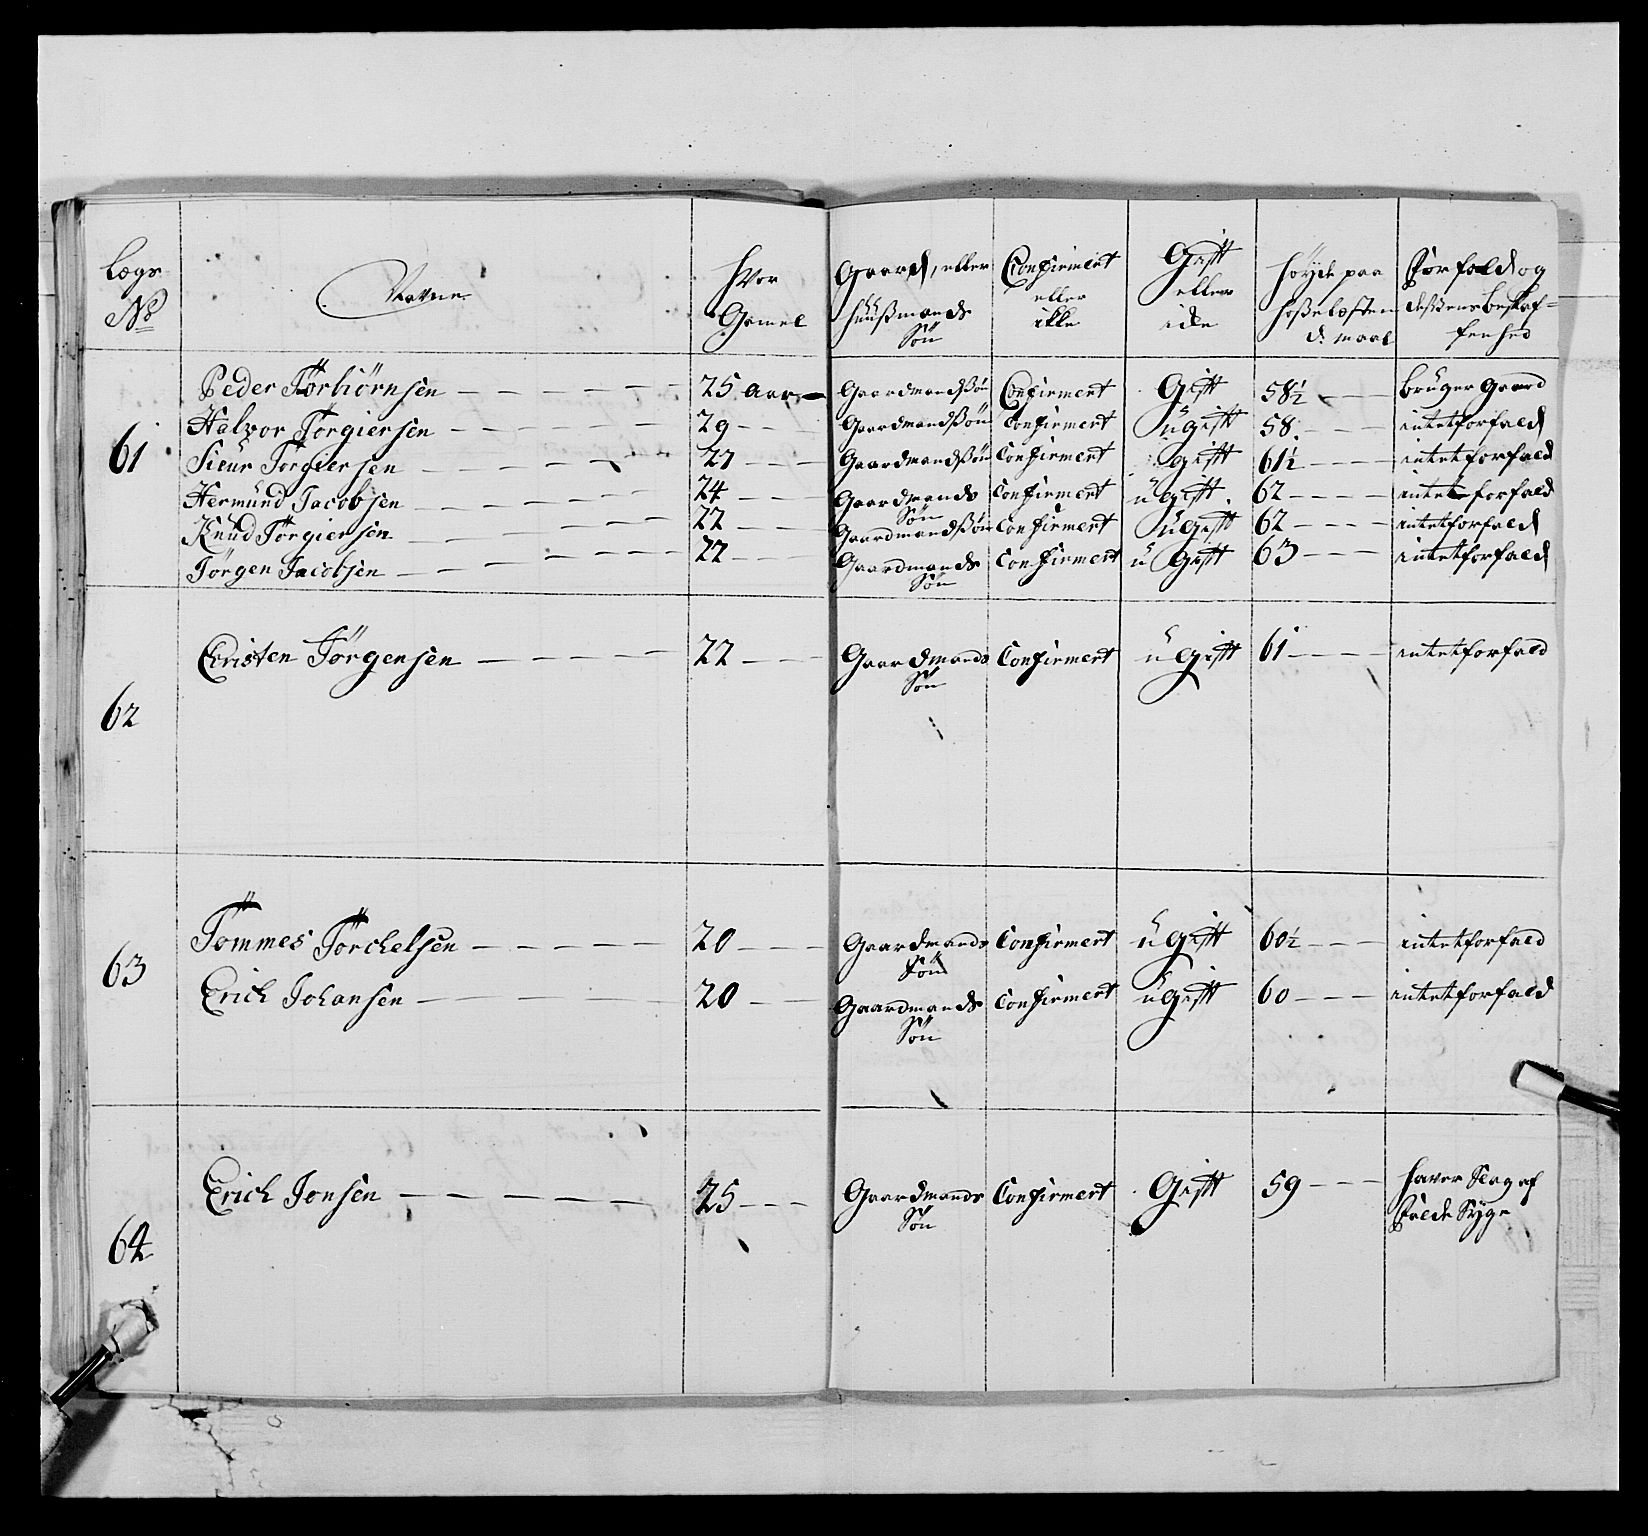 Lægs No | Navne | Hvor Gamel | Gaard, eller Huusmands Søn | Confirmert eller ikke | Gift eller icke | Høyde paa Hosseløsten d: maal | Forfald og dessens beskaffenhed
61
Peder Torbiörnsen — 25 aar — Gaardmandssøn Confirmert Gift 58½ bruger Gaard
Halvor Torgiersen — 29 — Gaardmandssøn Confirmert ugift 58 intet forfald
Sieur Torgiersen — 27 — Gaardmandssøn Confirmert ugift 61½ intet forfald
Hermund Jacobsen — 24 — Gaardmands Søn Confirmert ugift 62 intet forfald
Knud Törgiersen — 22 — Gaardmandssøn Confirmert ugift 62 intet forfald
Törgen Jacobsen — 22 — Gaardmands Søn Confirmert ugift 63 intet forfald
62
Christen Törgensen — 22 — Gaardmands Søn Confirmert ugift 61 intet forfald
63
Tömmes Törchelsen — 20 — Gaardmands Søn Confirmert ugift 60½ intet forfald
Erich Johansen — 20 — Gaardmands Søn Confirmert ugift 60 intet forfald
64
Erich Jonsen — 25 — Gaardmands Søn Confirmert Gift 59 haver Slag af
Falde Syge